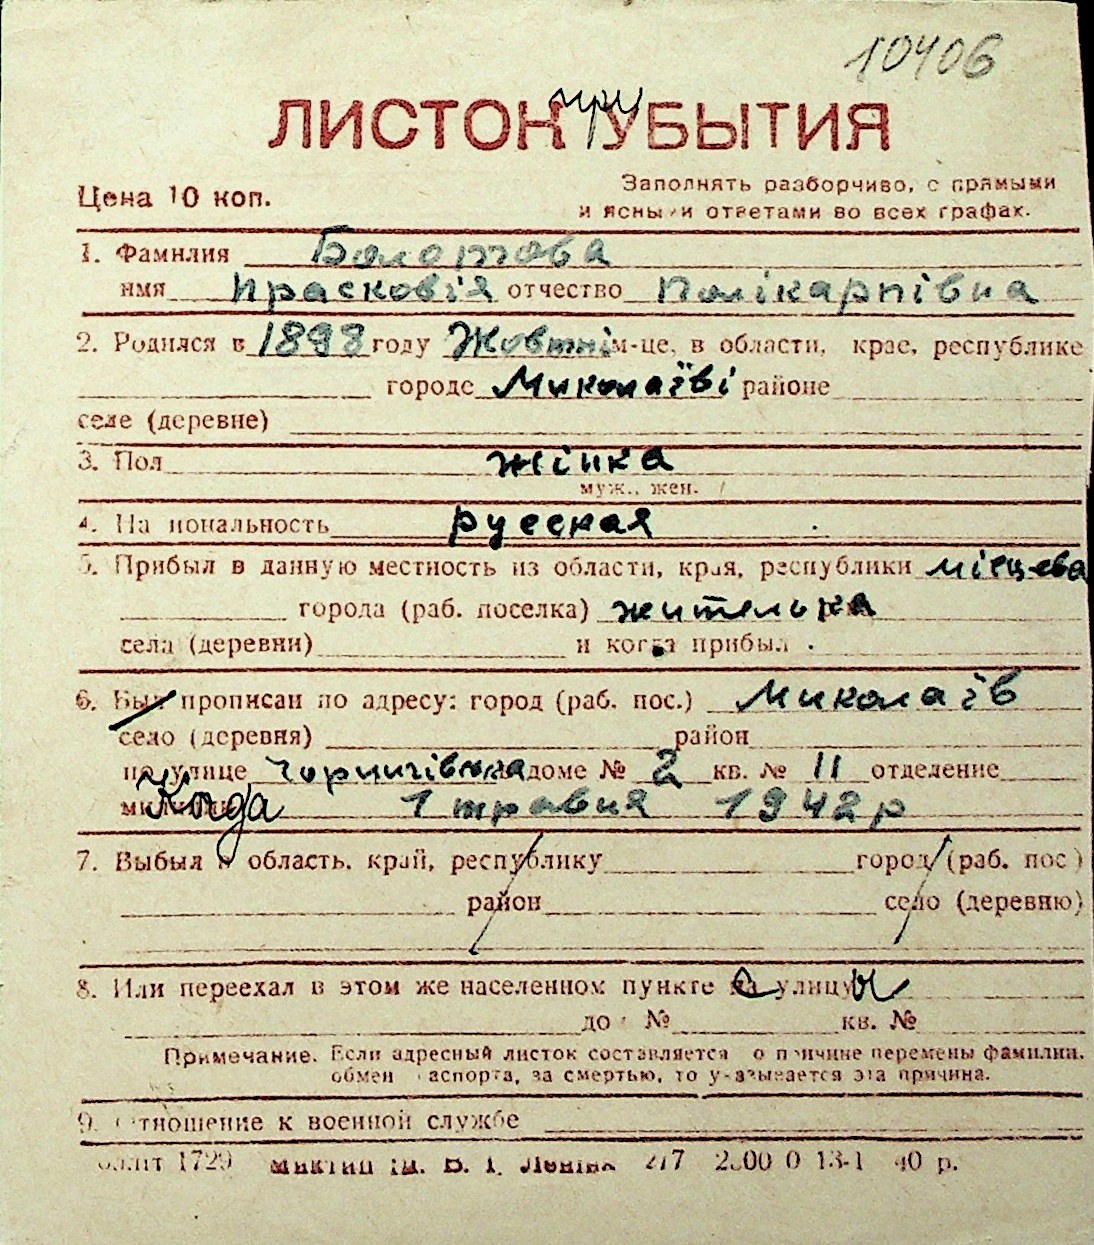 10406
ЛИСТОК при УБЫТИЯ
Цена 10 коп. Заполнять разборчиво, с прямыми
и ясными ответами во всех графах.
1. Фамилия Болотова
имя Прасковія отчество Полікарпівна
2. Родился в 1898 году Жовтні м-це, в области, крае, республике
городе Миколаїві районе
селе (деревне)
3. Пол жінка
муж., жен.
4. Национальность русская
5. Прибыл в данную местность из области, края, республики місцева
города (раб. поселка) жителька
села (деревни) и когда прибыл
6. Был прописан по адресу: город (раб. пос.) Миколаїв
село (деревня) район
на улице Чорнигівська доме № 2 кв. № 11 отделение
милиции Когда 1 травня 1942 р
7. Выбыл в область, край, республику город (раб. пос)
район село (деревню)
8. Или переехал в этом же населенном пункте с улицы
дом № кв. №
Примечание. Если адресный листок составляется по причине перемены фамилии,
обмен паспорта, за смертью, то указывается эта причина.
9. Отношение к военной службе
1729 І. Леніна 217 13-1 40 р.